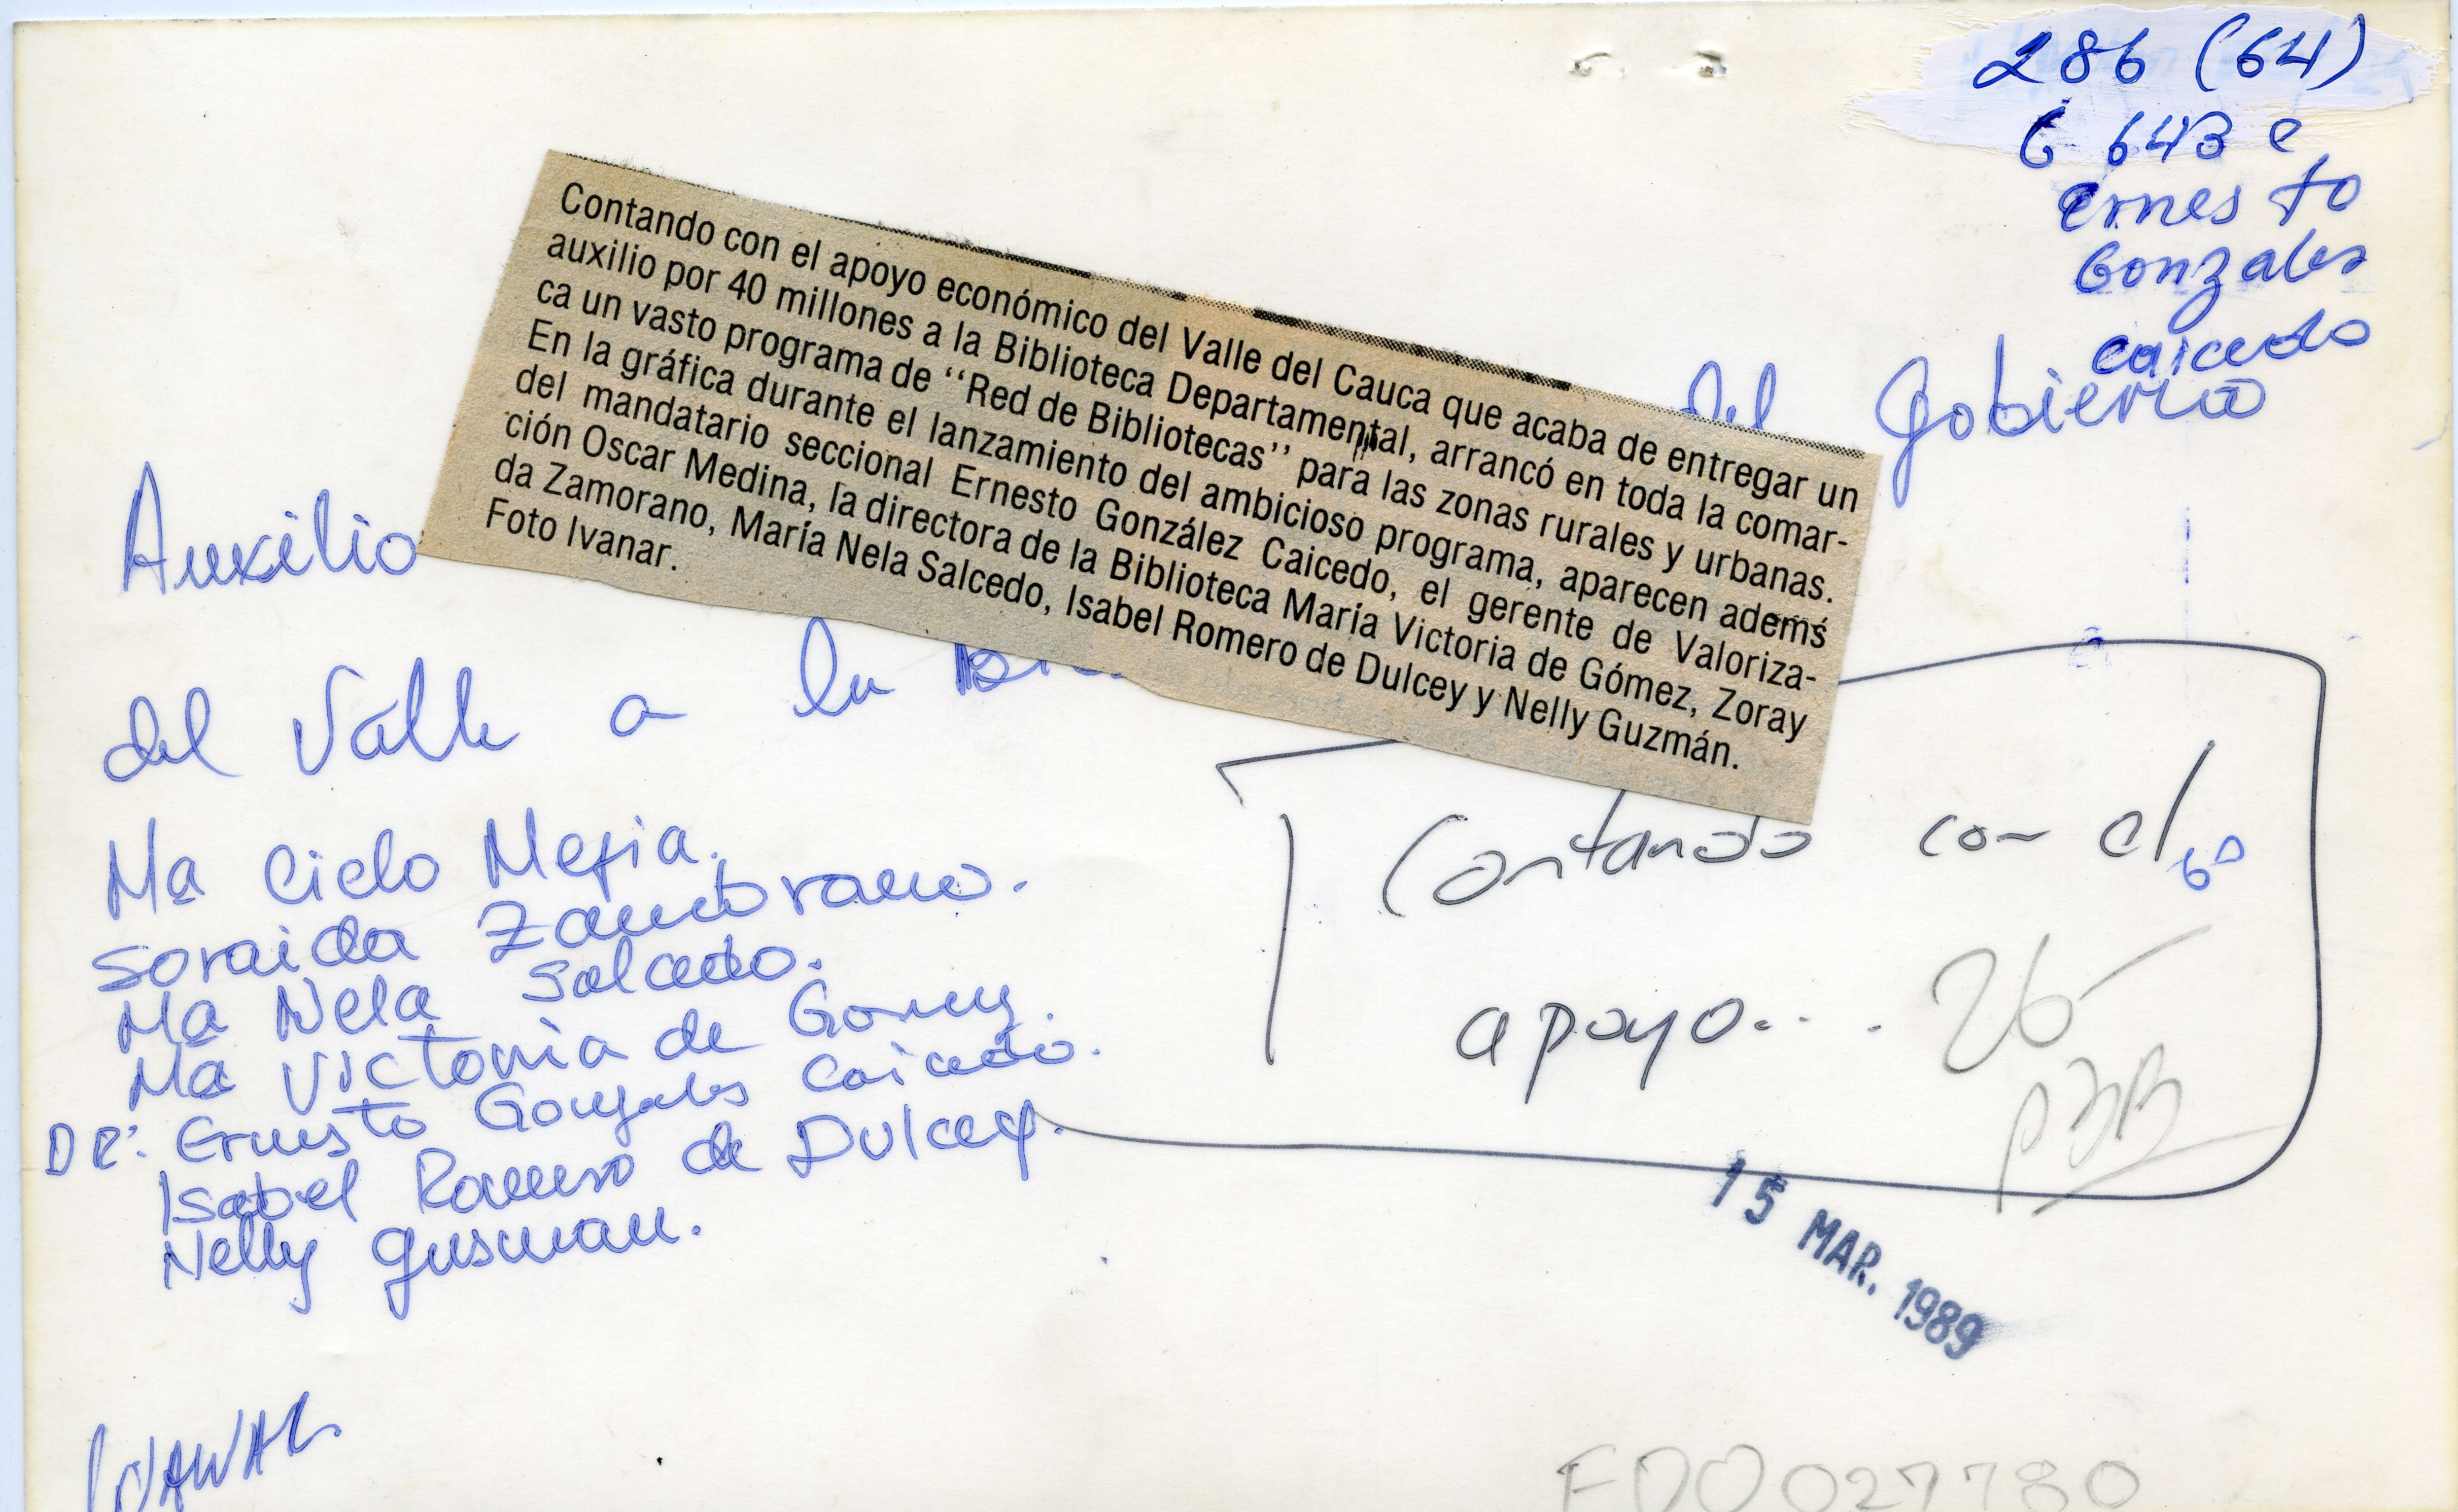 286 (64)
G 643 e
Ernesto
Gonzales
Caicedo
Contando con el apoyo económico del Valle del Cauca que acaba de entregar un
auxilio por 40 millones a la Biblioteca Departamental, arrancó en toda la comar-
ca un vasto programa de “Red de Bibliotecas” para las zonas rurales y urbanas.
En la gráfica durante el lanzamiento del ambicioso programa, aparecen adems
del mandatario seccional Ernesto González Caicedo, el gerente de Valoriza-
ción Oscar Medina, la directora de la Biblioteca María Victoria de Gómez, Zoray
da Zamorano, María Nela Salcedo, Isabel Romero de Dulcey y Nelly Guzmán.
Foto Ivanar.
Auxilio del Gobierno
del Valle a la
Ma Cielo Mejia.
Soraida Zambrano.
Ma Nela Salcedo.
Ma Victoria de Gomez.
DR: Ernesto Gonzales Caicedo.
Isabel Romero de Dulcey.
Nelly Gusman.
Contando con el
apoyo....
26
P3B
15 MAR. 1989
IVANAR
FD0027780